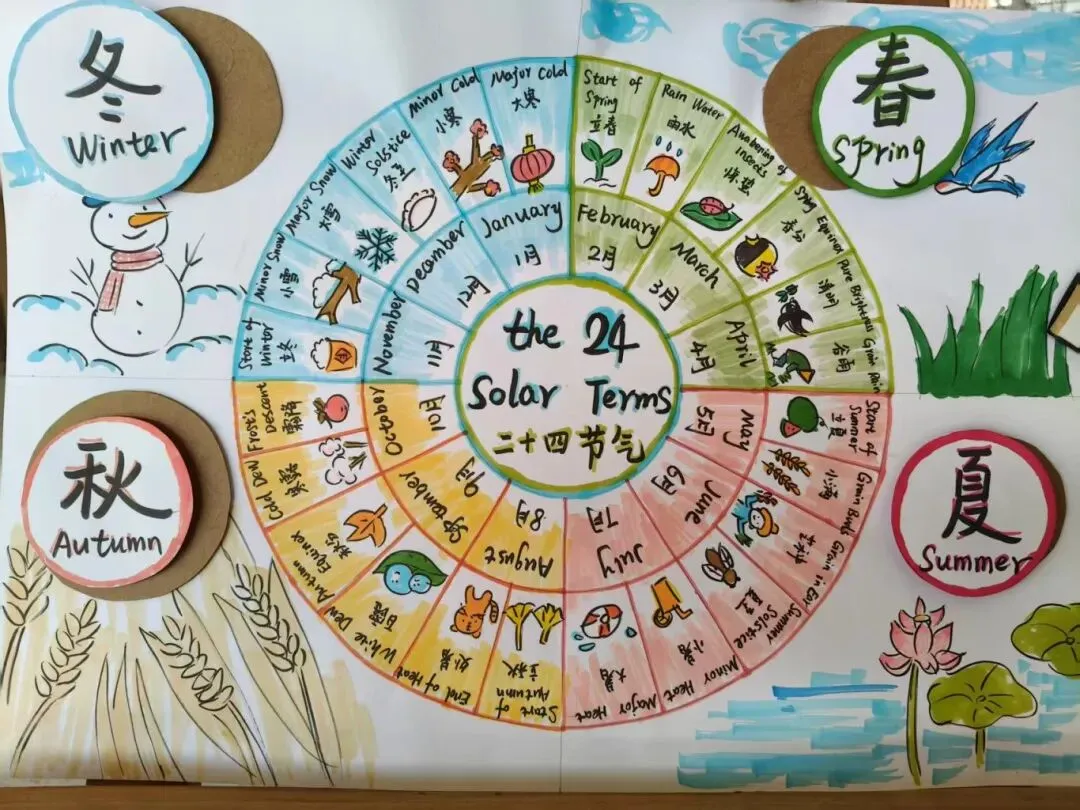 冬
Winter
春
Spring
秋
Autumn
夏
Summer
the 24
Solar Terms
二十四节气
Start of
Spring
立春
Rain Water
雨水
Awakening of
Insects
惊蛰
Spring Equinox
春分
Pure Brightness
清明
Grain Rain
谷雨
Start of
Summer
立夏
Grain Buds
小满
Grain in Ear
芒种
Summer
Solstice
夏至
Minor Heat
小暑
Major Heat
大暑
Start of
Autumn
立秋
End of Heat
处暑
White Dew
白露
Autumn
Equinox
秋分
Cold Dew
寒露
Frosts
Descent
霜降
Start of
Winter
立冬
Minor Snow
小雪
Major Snow
大雪
Winter
Solstice
冬至
Minor Cold
小寒
Major Cold
大寒
January
1月
February
2月
March
3月
April
4月
May
5月
June
6月
July
7月
August
8月
September
9月
October
10月
November
11月
December
12月